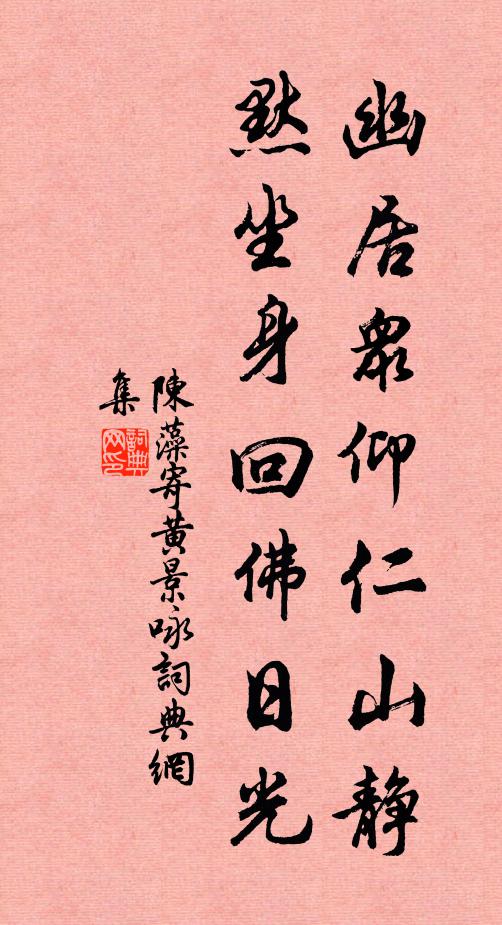 幽居衆仰仁山静
默坐身回佛日光
陳藻寄黄景咏詞典網
集
詞典网印